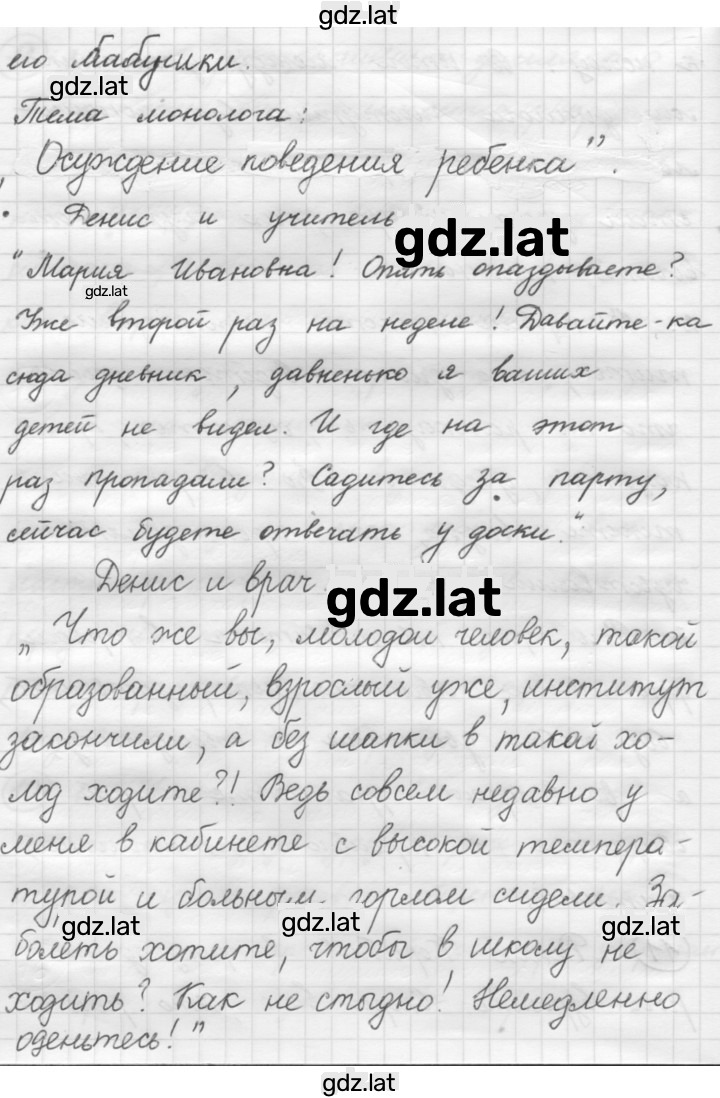 gdz.lat
его бабушки.
gdz.lat
Тема монолога:
Осуждение поведения ребенка".
Денис и учитель
gdz.lat
"Мария Ивановна! Опять опаздываете?
gdz.lat
Уже второй раз на неделе! Давайте-ка
сюда дневник, давненько я ваших
детей не видел. И где на этот
раз пропадали? Садитесь за парту,
сейчас будете отвечать у доски."
Денис и врач
gdz.lat
„Что же вы, молодой человек, такой
образованный, взрослый уже, институт
закончили, а без шапки в такой хо-
лод ходите?! Ведь совсем недавно у
меня в кабинете с высокой темпера-
турой и больным горлом сидели. За-
gdz.lat gdz.lat gdz.lat
болеть хотите, чтобы в школу не
ходить? Как не стыдно! Немедленно
оденьтесь!"
gdz.lat